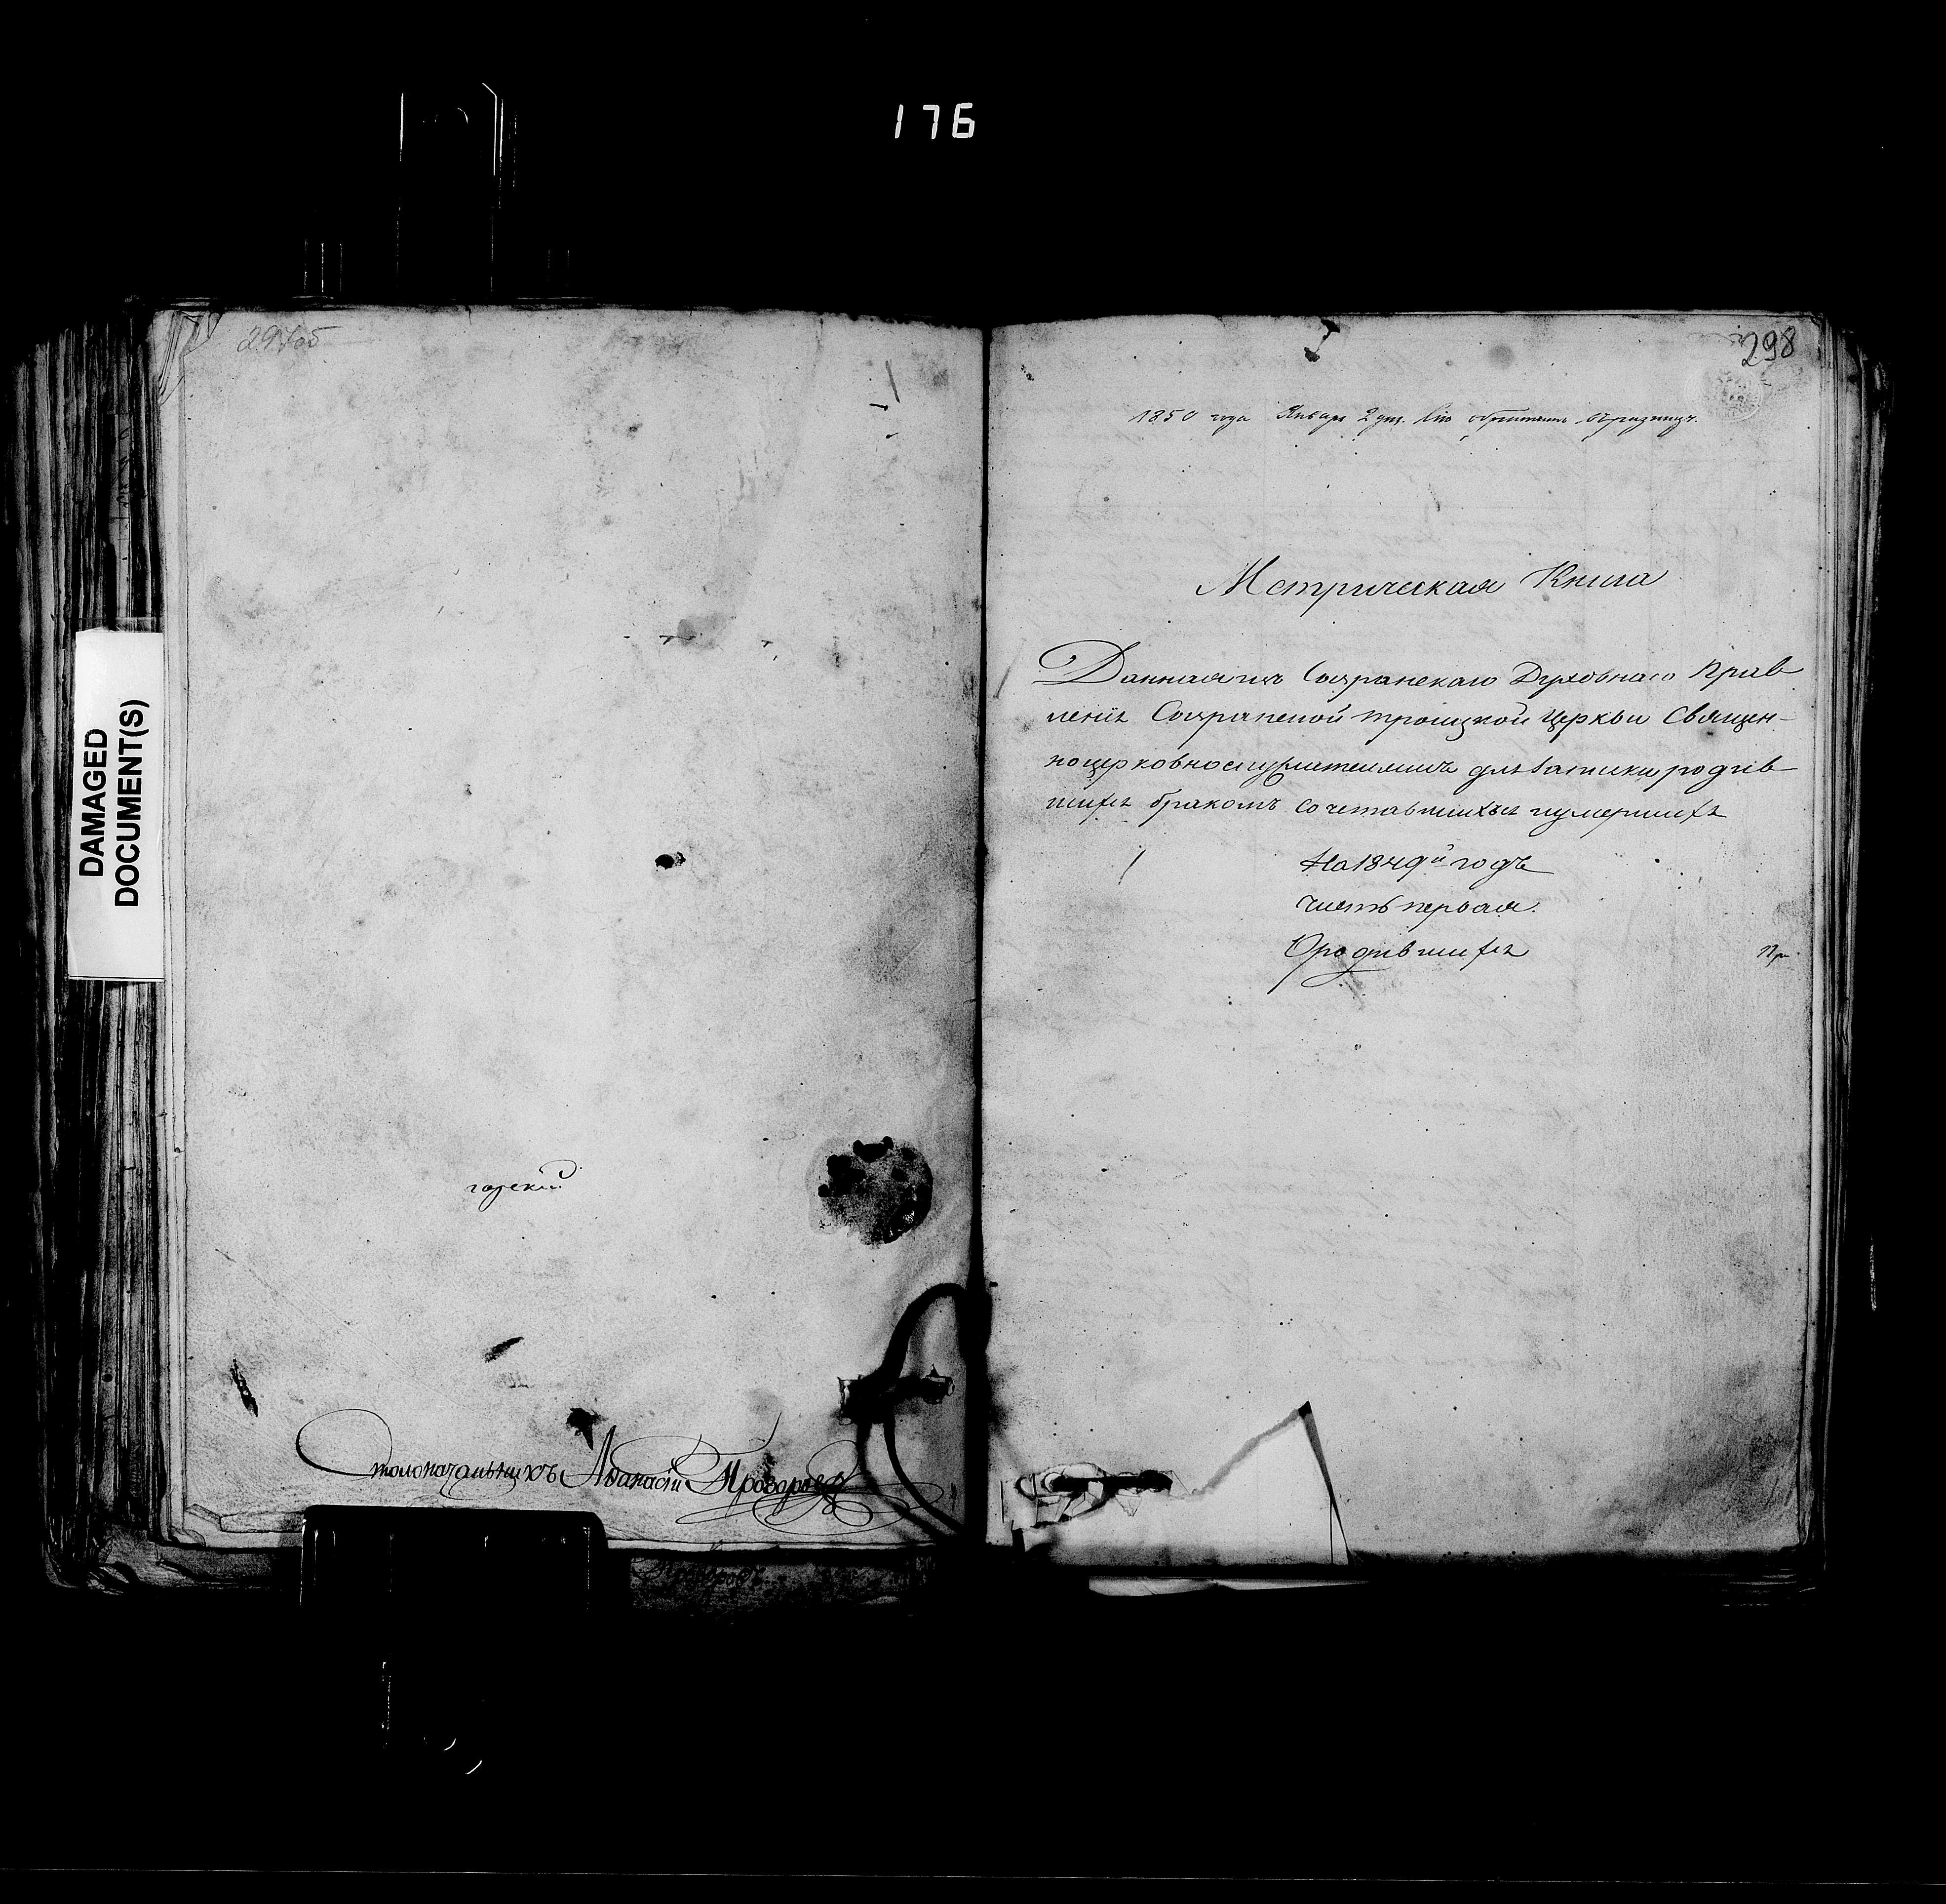 176
DAMAGED
DOCUMENT(S)
297об
горскій
Столоначальникъ Афанасій
298
1850 года Января 2 дня.
Метрическая Книга
Данная изъ Сызранскаго Духовнаго Прав
ленія Сызранской троицкой Церкви Священ-
ноцерковнослужителямъ для записки родив-
шихся бракомъ сочетавшихся и умершихъ
На 1849й годъ
часть первая.
О родившихся